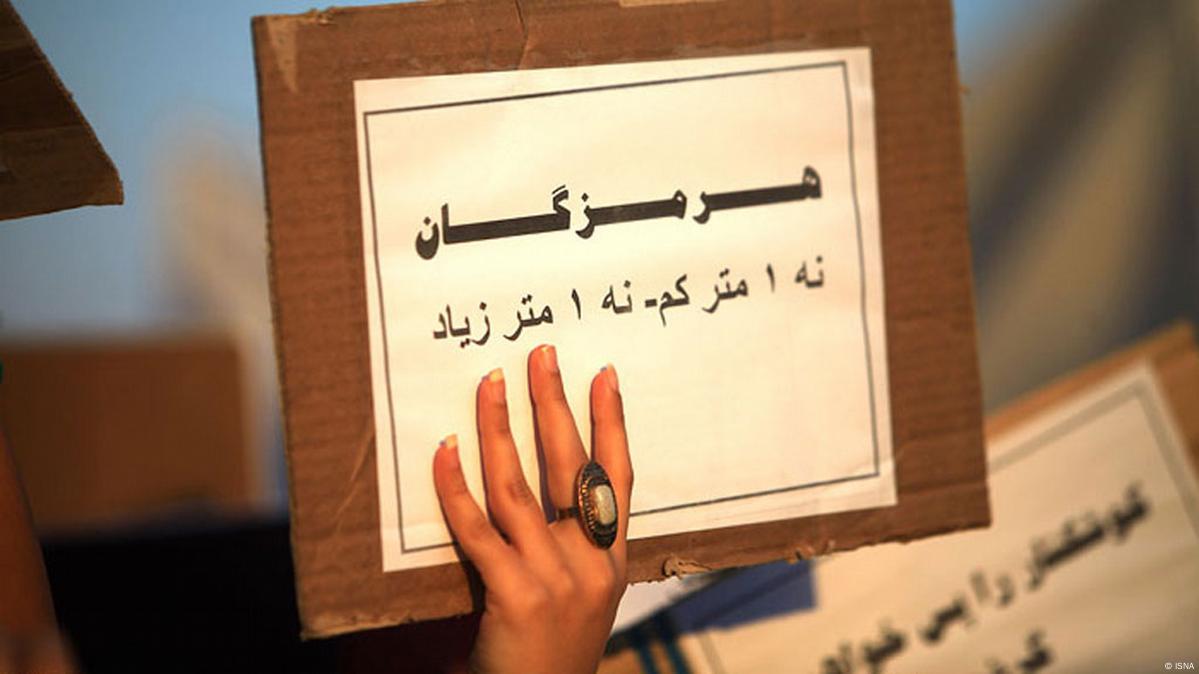 هرمزگان
نه ۱ متر کم- نه ۱ متر زیاد
کوشکنار را پس خواهیم
© ISNA